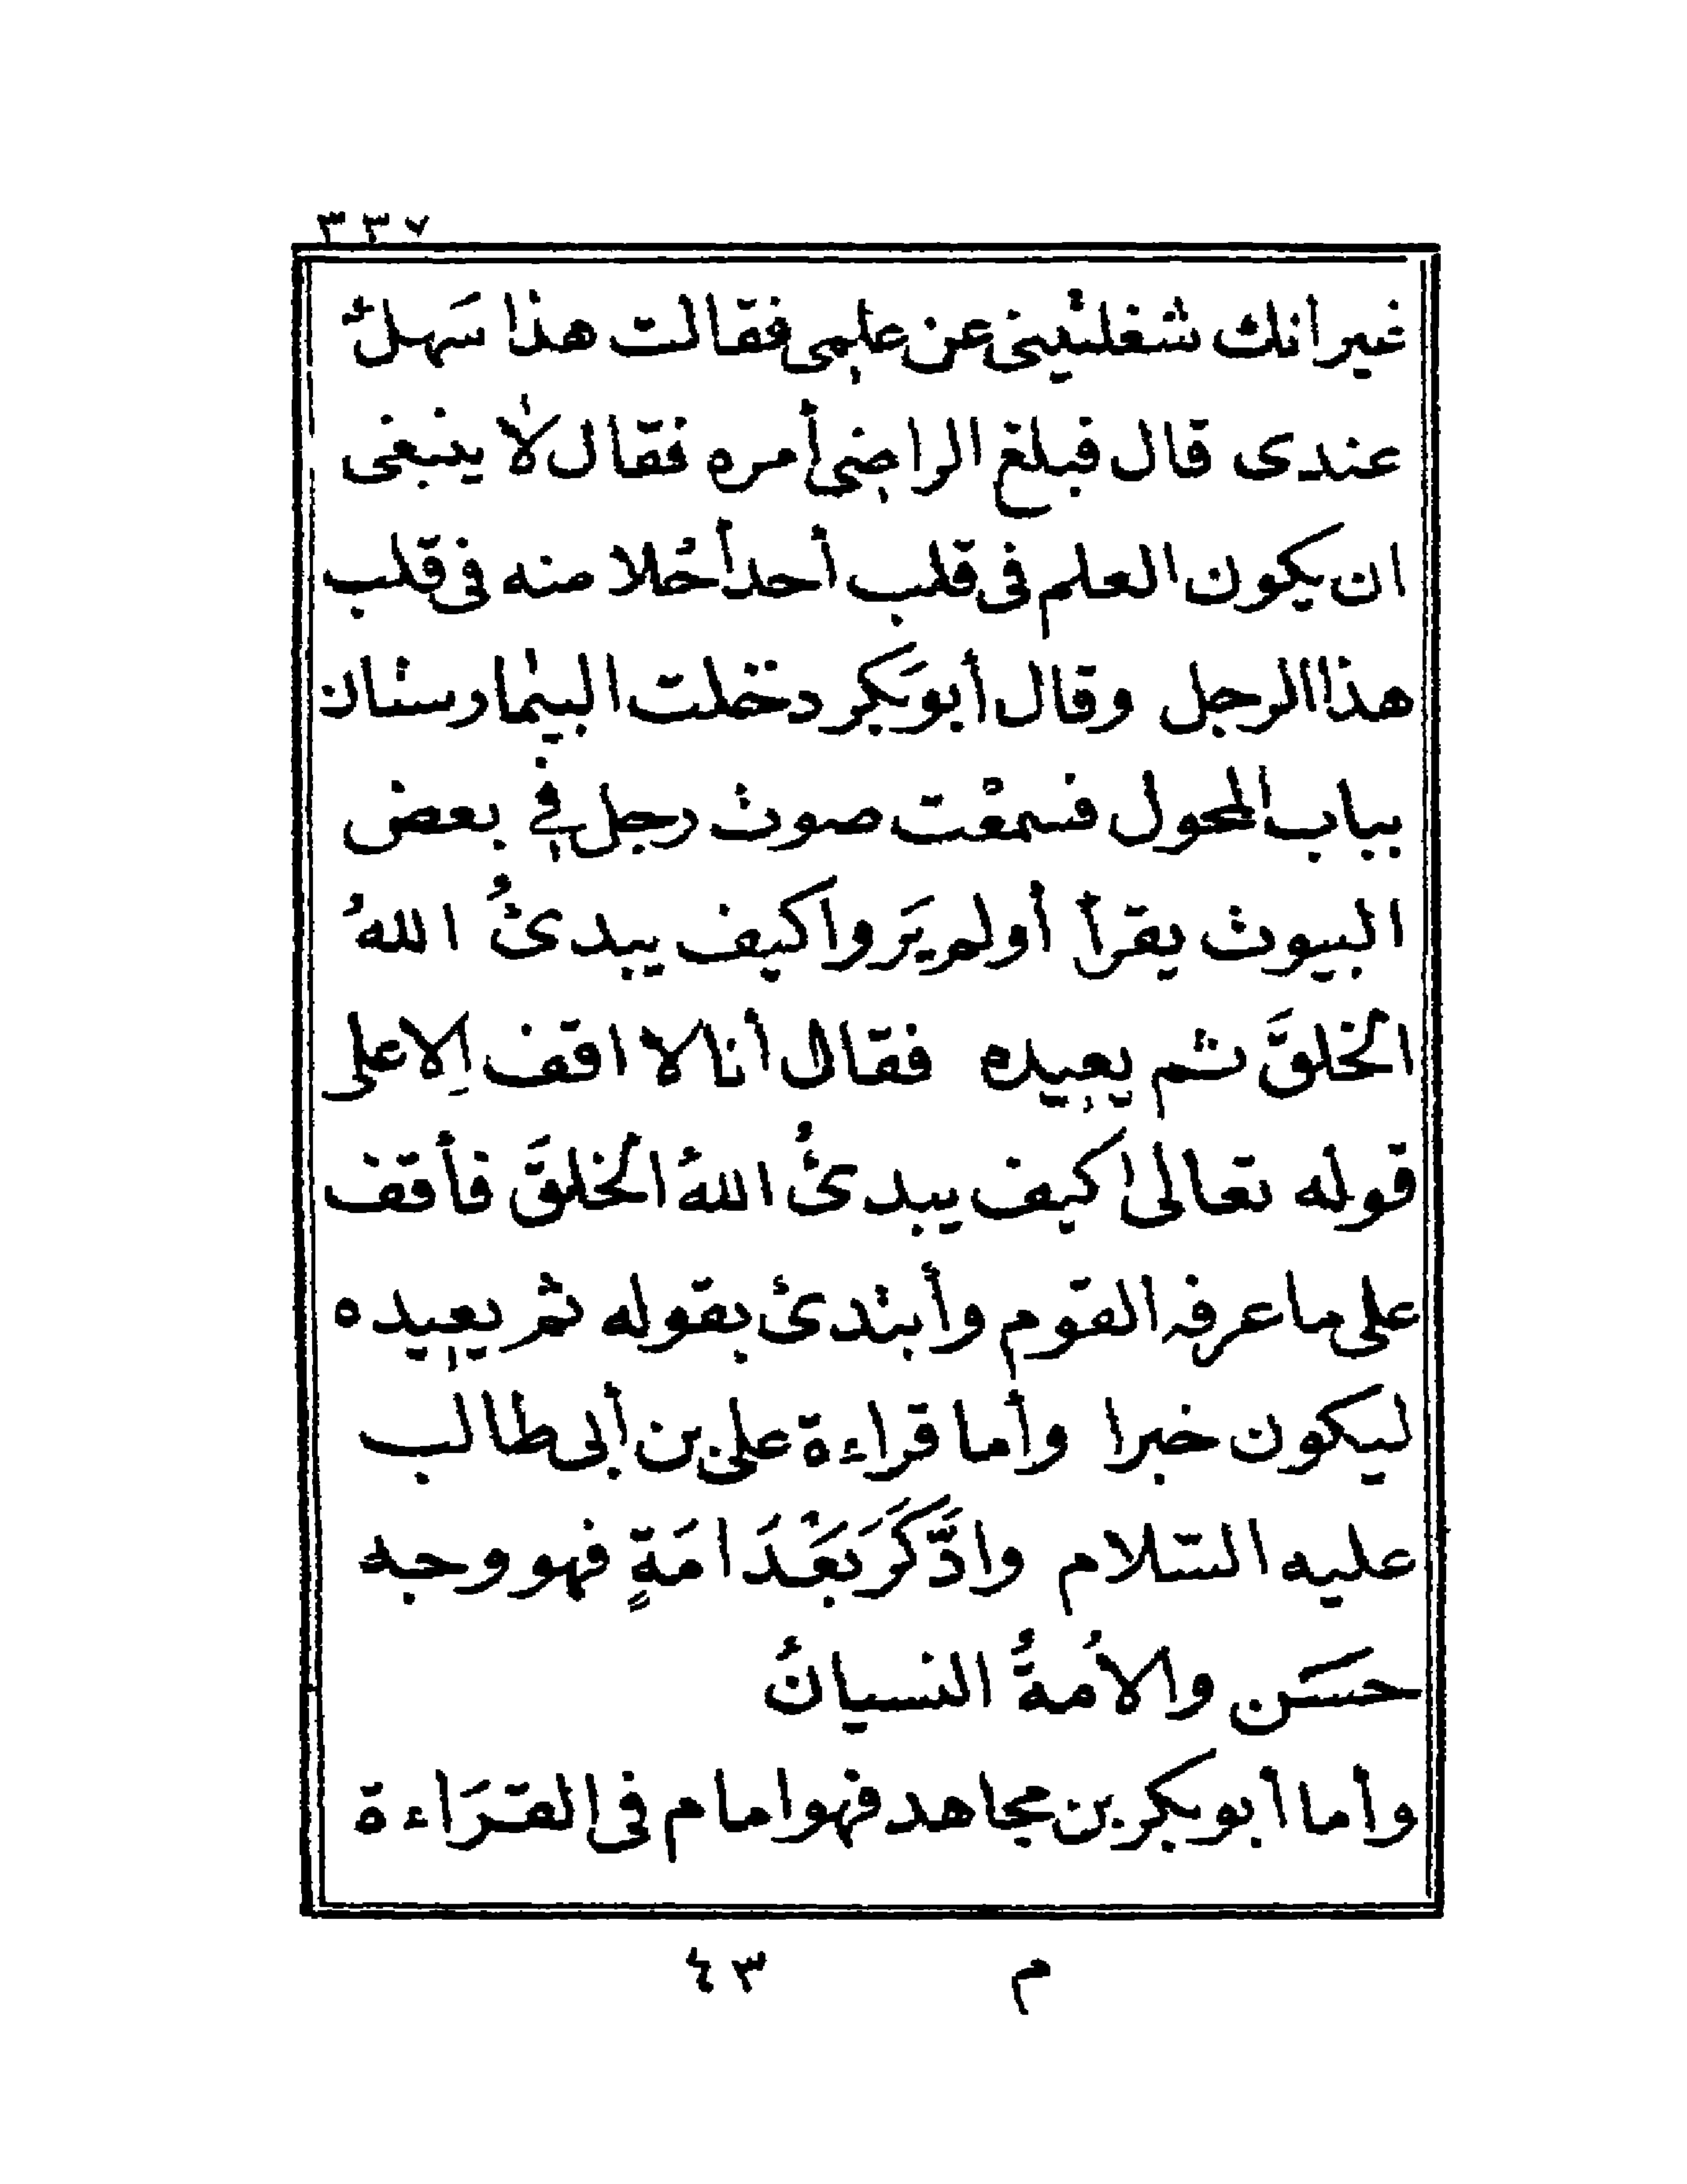 ٣٣٧
غيرانك شغلتينى عن علمى فقالت هذا سَهلٌ
عندى قال فبلغ الراضى أمره فقال لا ينبغى
ان يكون العلم فى قلب أحد أحْلا منه فى قلب
هذا الرجل وقال أبو بَكر دخلت البيمارستان
بباب المحول فسمعْت صوت رجل فى بعض
البيوت يقرأ أولم يَروا كيف يبدئُ اللهُ
الخلقَ ثم يعيده فقال أنا لا اقف إلا على
قوله تعالى كيف يبدئُ اللهُ الخلقَ فأقف
على ما عرفه القوم وأبتدئ بقوله ثم يعيده
ليكون خبرا وأما قراءة على بن أبى طالب
عليه السّلام وادَّكَرَ بَعْدَ امَةٍ فهو وجه
حسَن والأمةُ النسيانُ
وأما أبو بكر بن مجاهد فهو امام فى القرَاءة
م ٤٣